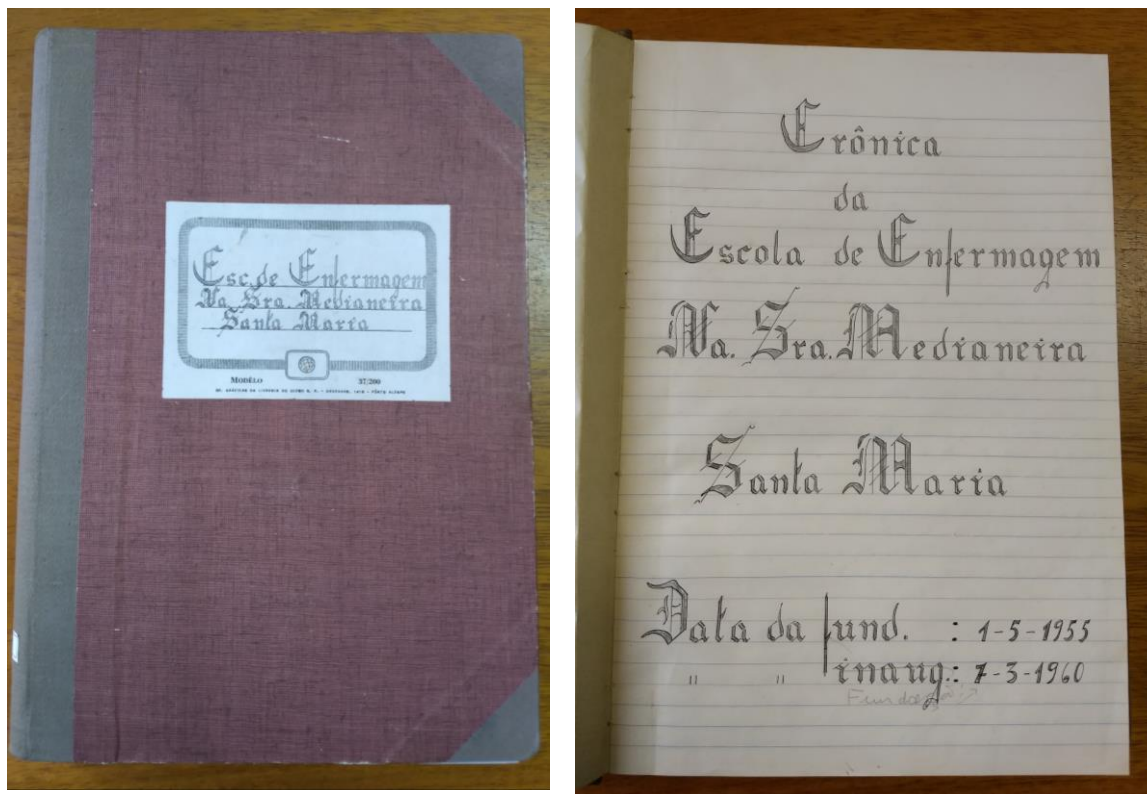 Esc. de Enfermagem
Na. Sra. Medianeira
Santa Maria
MODÊLO 37/200
Crônica
da
Escola de Enfermagem
Na. Sra. Medianeira
Santa Maria
Data da fund. : 1-5-1955
" " inaug.: 7-3-1960